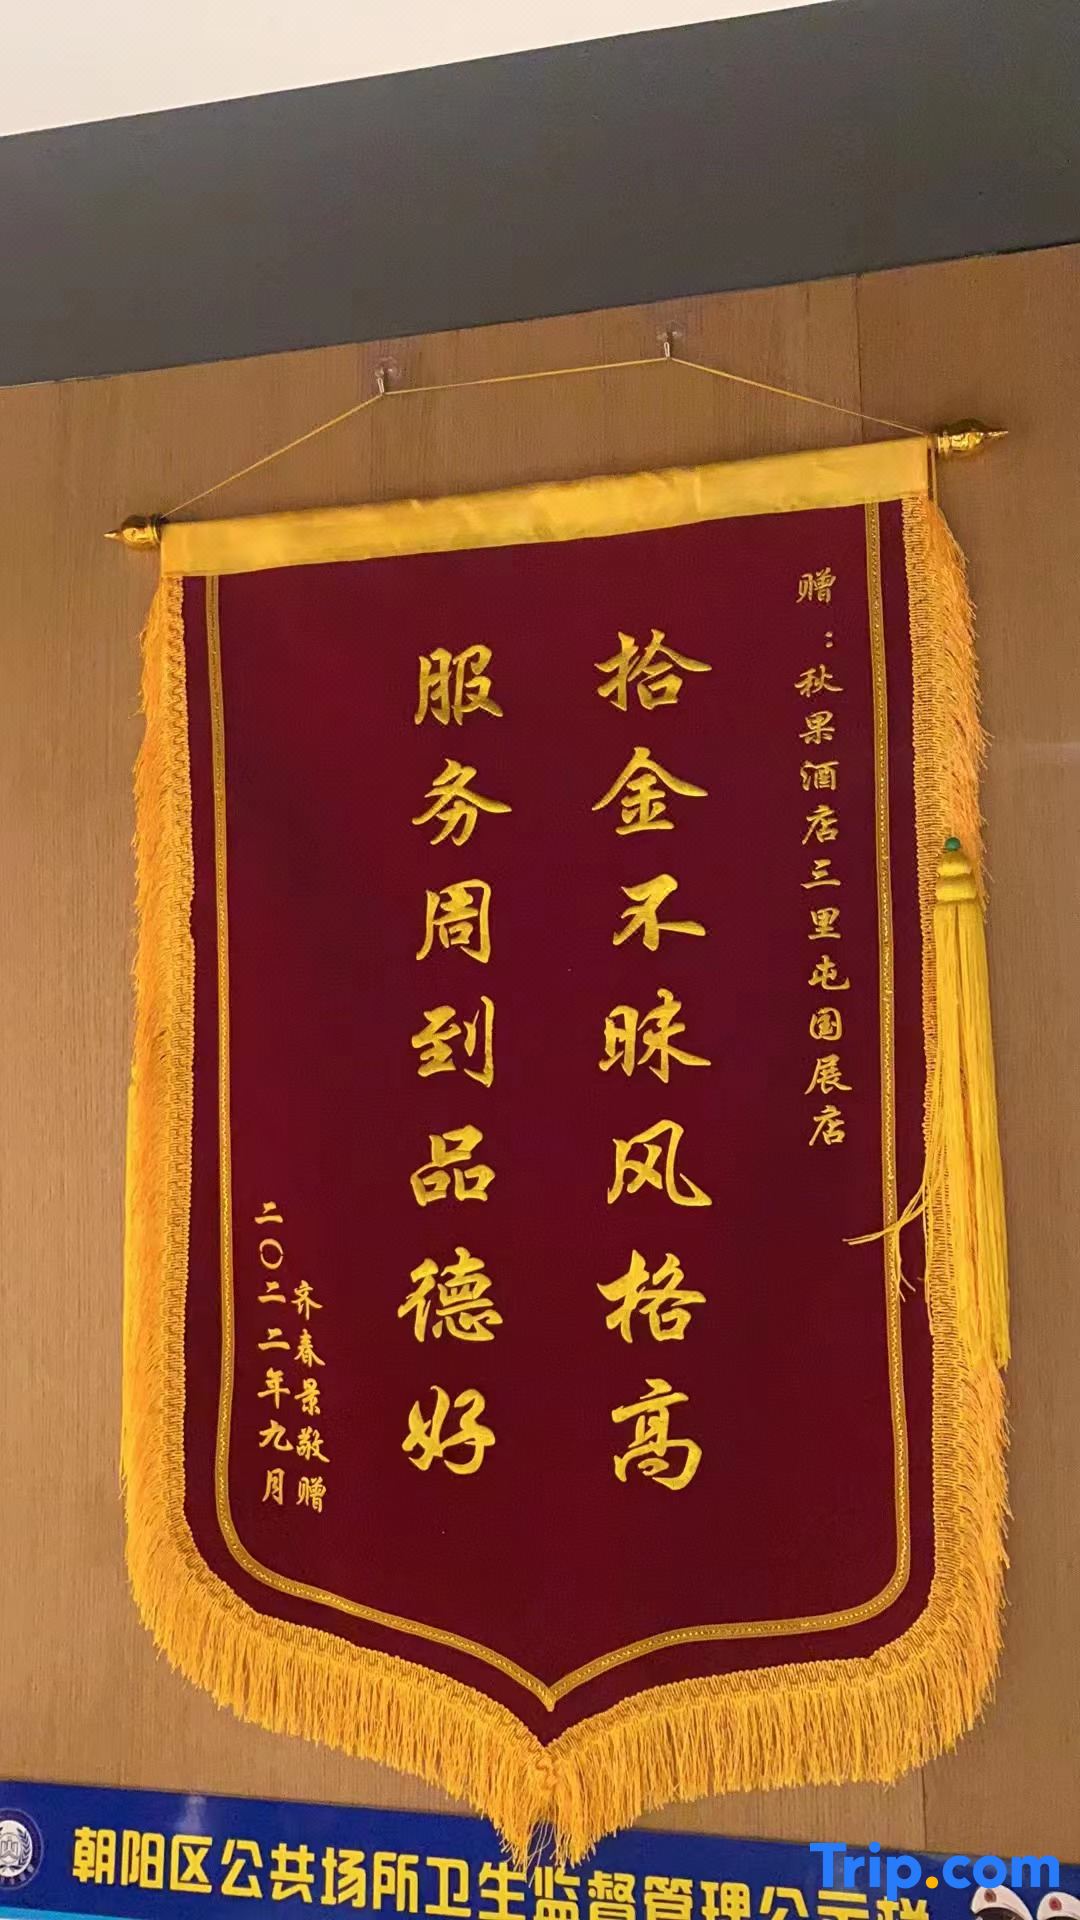 赠：秋果酒店三里屯国展店
拾金不昧风格高
服务周到品德好
齐春景敬赠
二〇二二年九月
朝阳区公共场所卫生监督管理公示栏
Trip.com